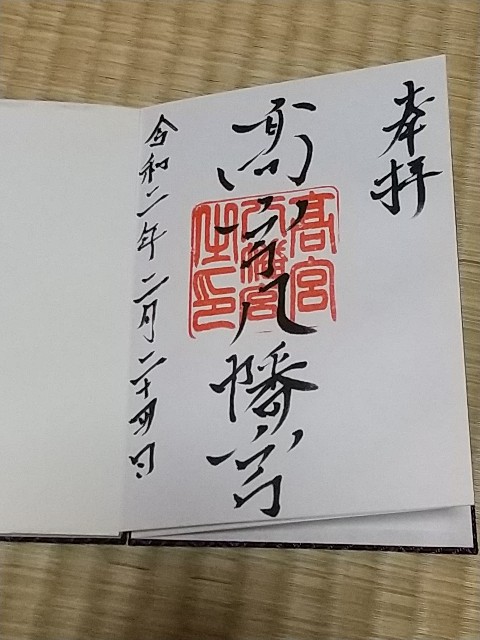 奉拝
高宮八幡宮
髙宮
八幡宮
之印
令和二年二月二十四日